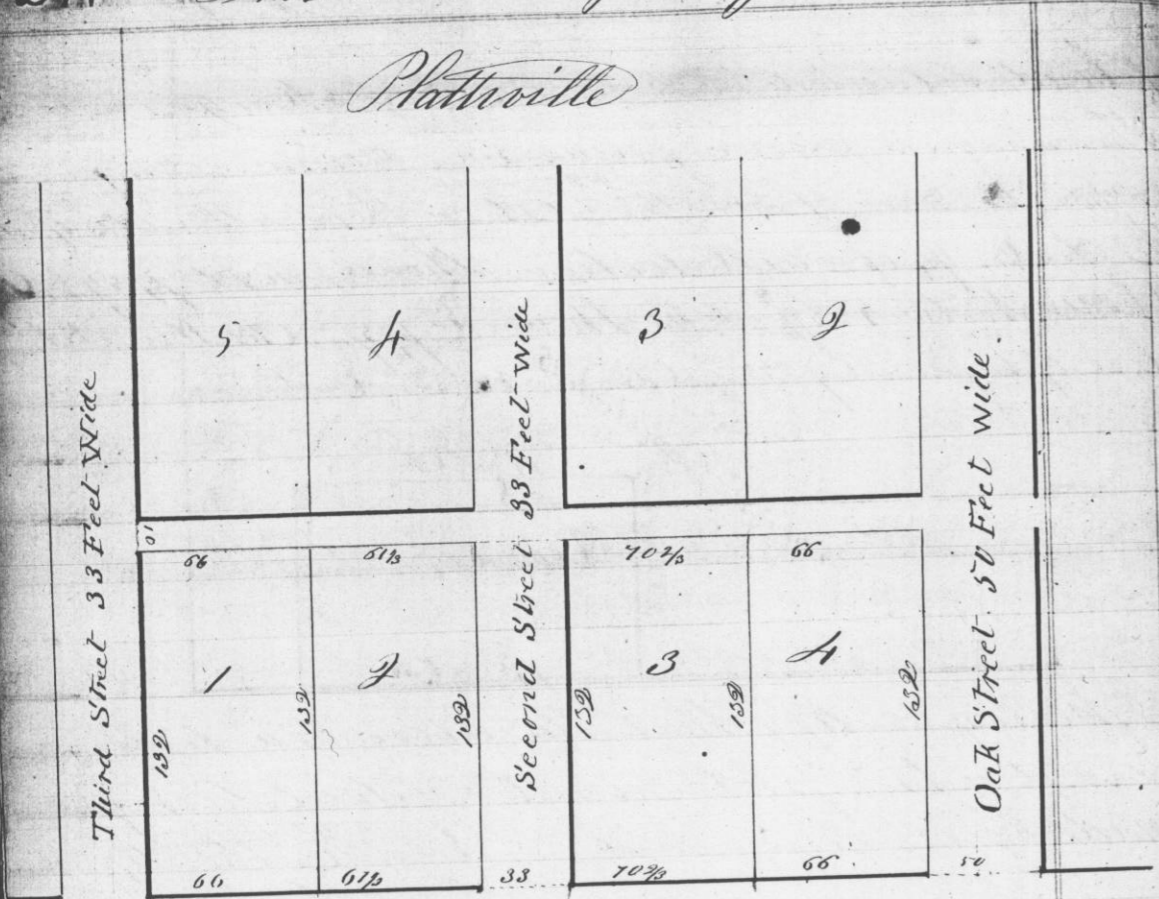 Plattville
5 4 3 2
Third Street 33 Feet Wide
Second Street 33 Feet Wide
Oak Street 50 Feet Wide
10
66 61⅓ 70⅔ 66
1 2 3 4
132 132 132 132 132 132
66 61⅓ 33 70⅔ 66 50